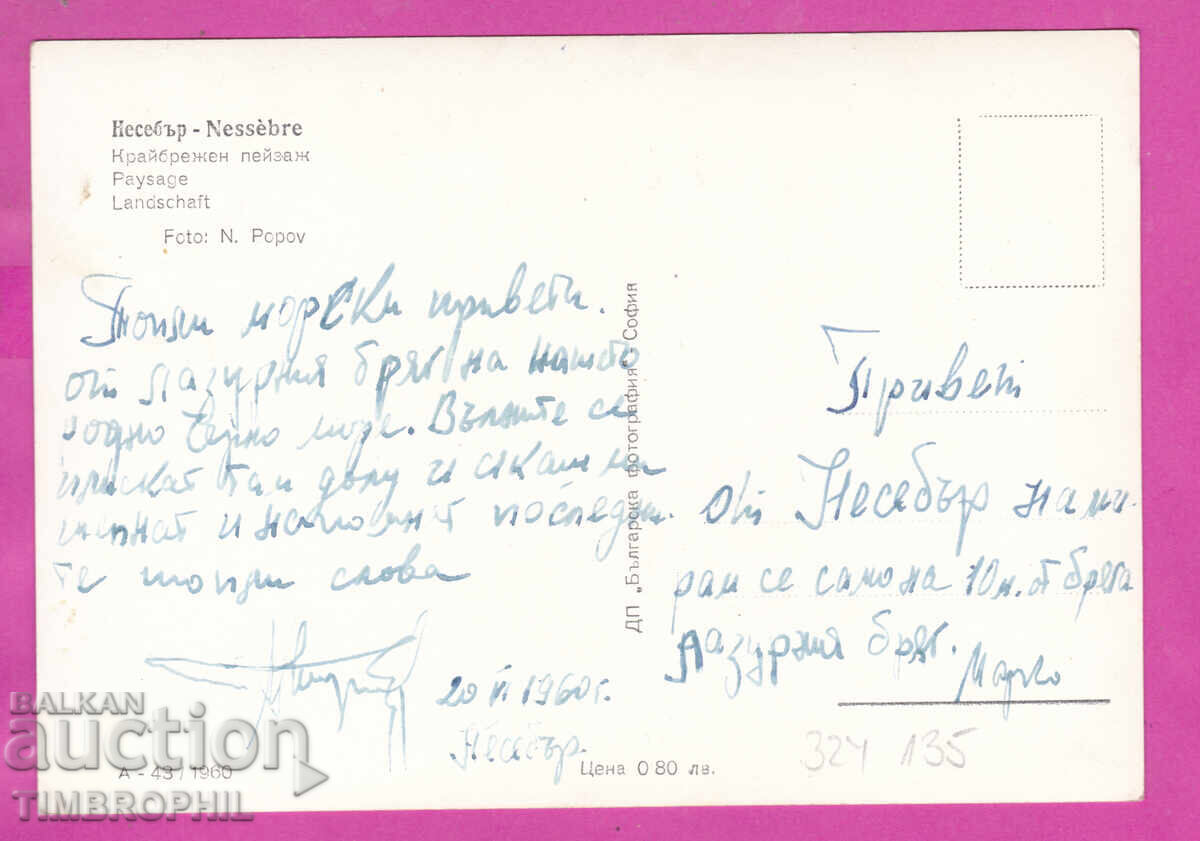 Несебър - Nessèbre
Крайбрежен пейзаж
Paysage
Landschaft
Foto: N. Popov
Топли морски привети.
от лазурния бряг на нашто
родно Черно море. Вълните се
плискат там долу и сякаш ми
шепнат и напомнят последни
те топли слова
20 VI 1960 г.
Несебър
ДП „Българска фотография" - София
Привет
от Несебър нами-
рам се само на 10 м. от брега
Лазурния бряг.
Марко
А - 43 / 1960
Цена 0 80 лв.
324 135
BALKAN
auction
TIMBROPHIL